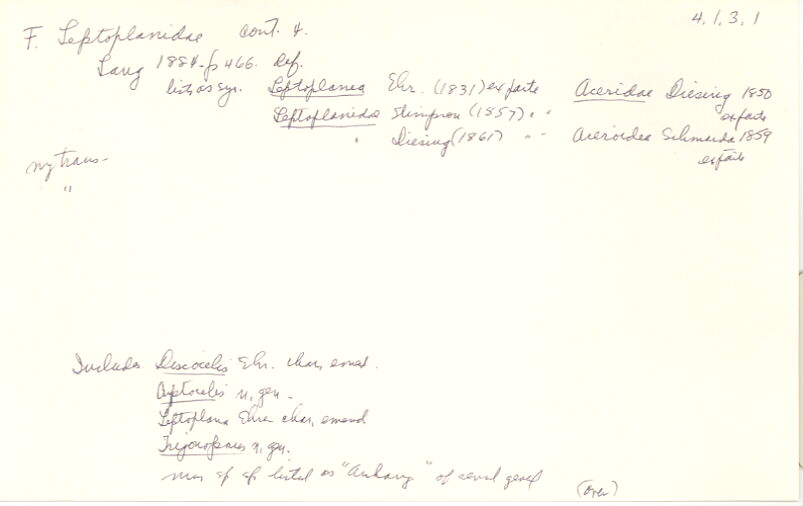 4.1.3.1
F. Leptoplanidae cont. 4.
Lang 1884. p 466. Def.
lists as syn. Leptoplanea Ehr. (1831) ex parte Aceridae Diesing 1850 ex parte
Leptoplanidae Stimpson (1857) " " Aceroidea Schmarda 1859 ex parte
" Diesing (1861) " "
my trans-
"
Includes Discocelis Ehr. char, emend.
Cryptocelis n, gen.
Leptoplana Ehre char, emend
Trigonoporus n, gen.
sp listed as "Anhang" of
(over)